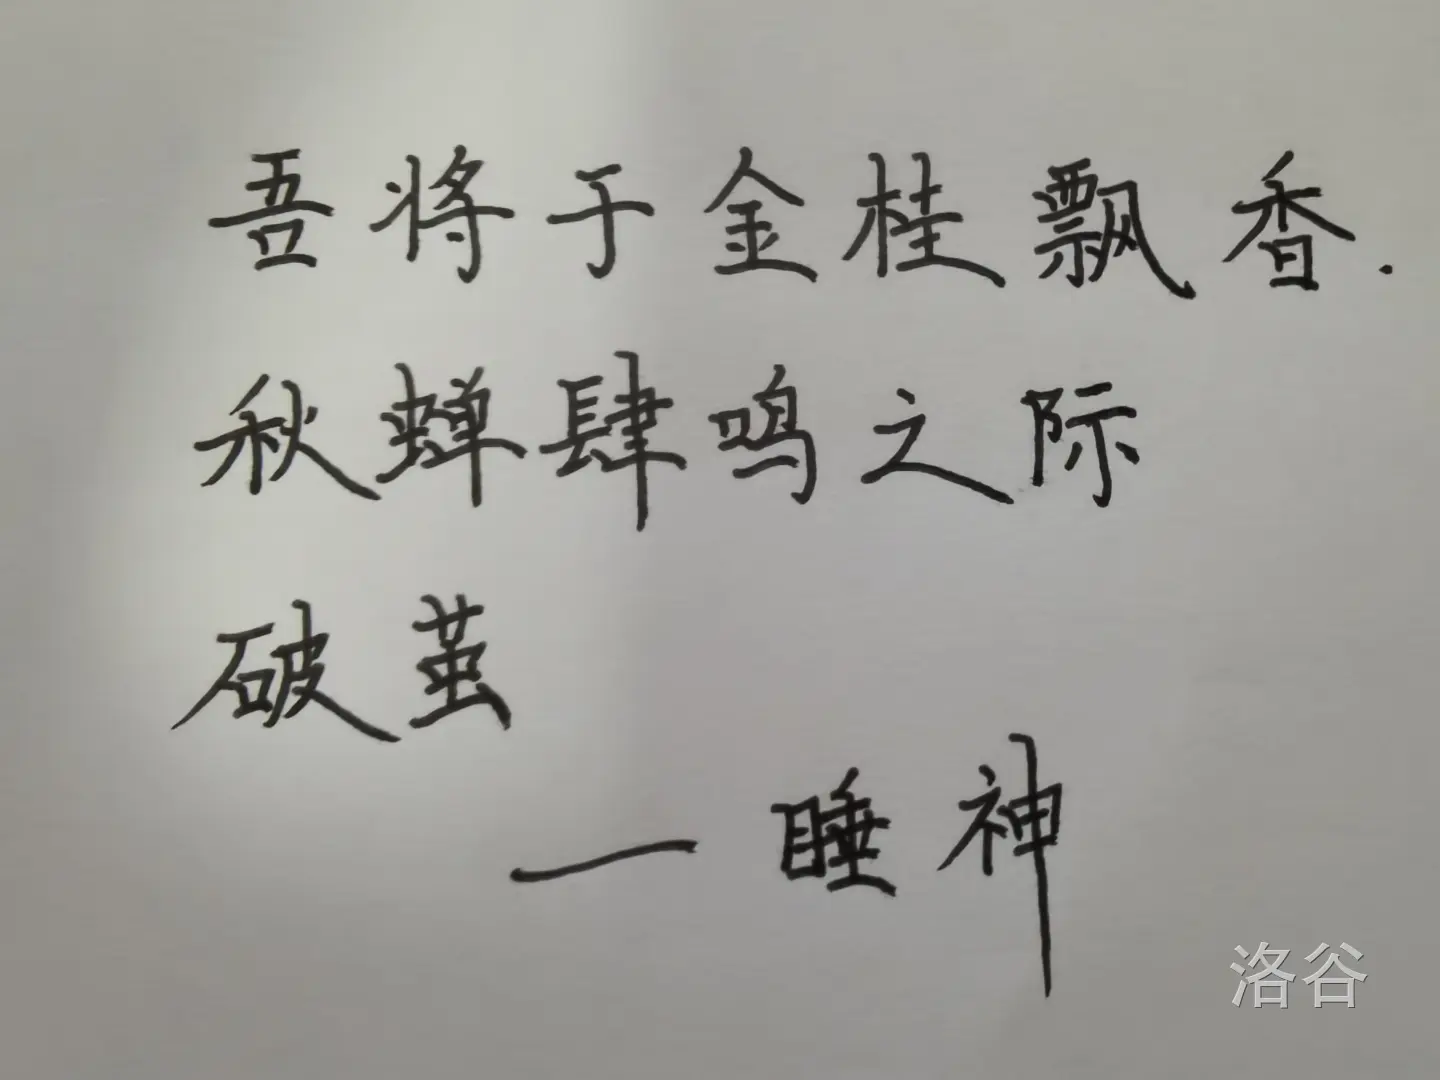 吾将于金桂飘香.
秋蝉肆鸣之际
破茧
—睡神
洛谷